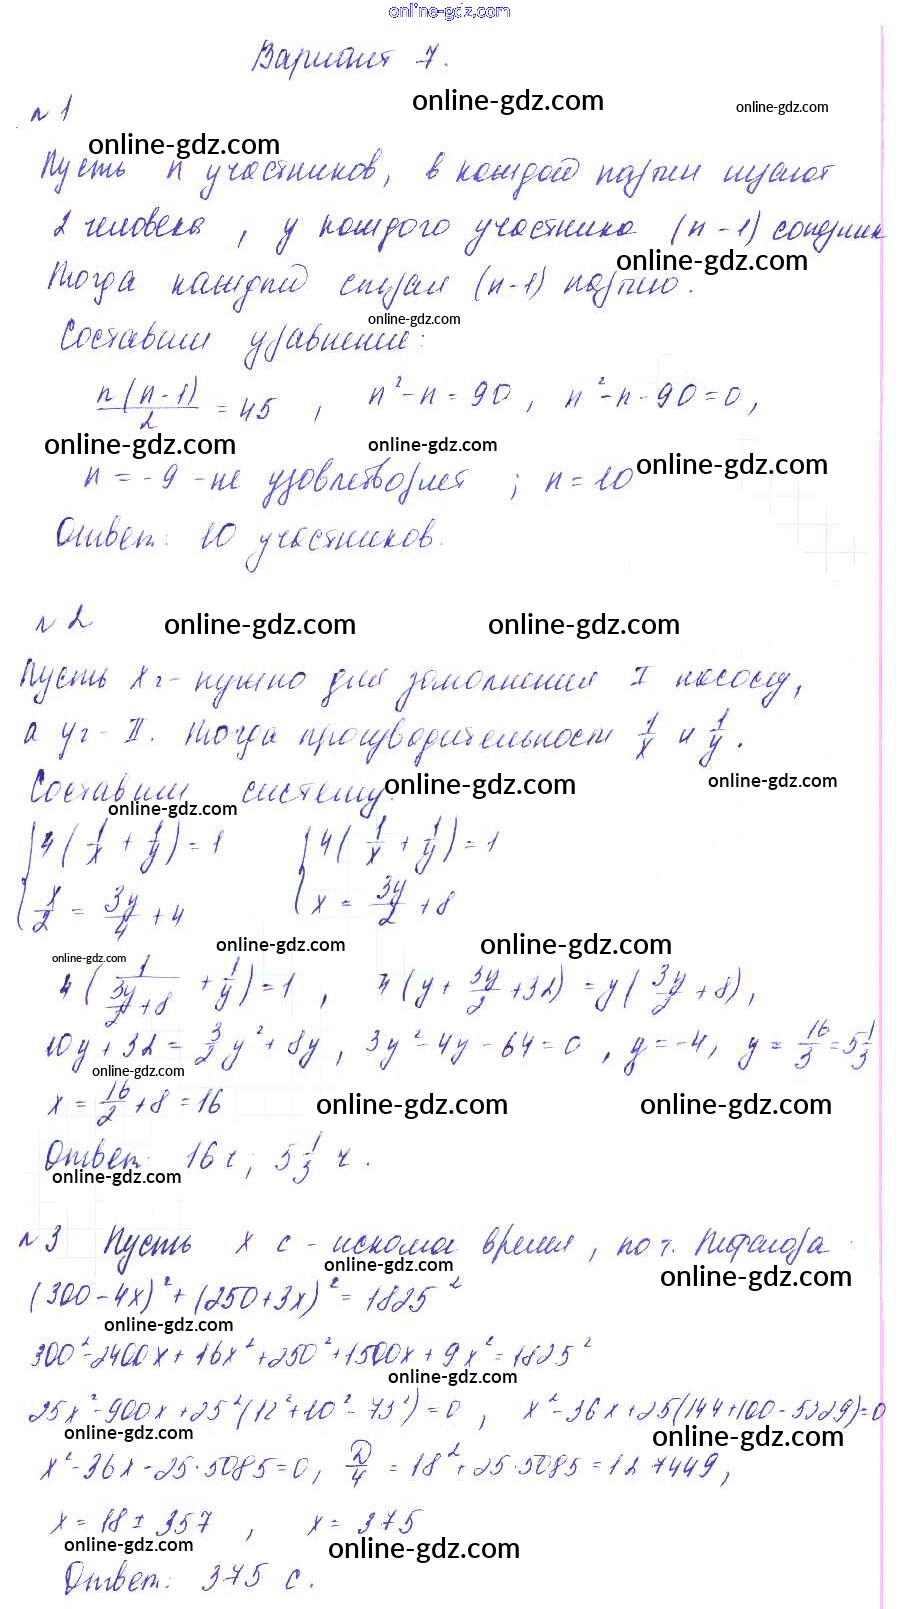 online-gdz.com
Вариант 7.
online-gdz.com online-gdz.com
№1
online-gdz.com
Пусть n участников, в каждой партии играют
2 человека, у каждого участника (n-1) соперник
online-gdz.com
Тогда каждый сыграл (n-1) партию.
online-gdz.com
Составим уравнение:
n(n-1)/2 = 45, n²-n=90, n²-n-90=0,
online-gdz.com online-gdz.com online-gdz.com
n=-9 - не удовлетворяет; n=10
Ответ: 10 участников.
№2 online-gdz.com online-gdz.com
Пусть x ч - нужно для заполнения I насосу,
а y ч - II. Тогда производительности 1/x и 1/y.
online-gdz.com online-gdz.com
Составим систему:
online-gdz.com
{4(1/x + 1/y)=1 {4(1/x + 1/y)=1
x/2 = 3y/4 + 4 x = 3y/2 + 8
online-gdz.com online-gdz.com online-gdz.com
4(1/(3y/2+8) + 1/y)=1, 4(y + 3y/2 + 32) = y(3y/2 + 8),
10y+32 = 3/2 y² + 8y, 3y²-4y-64=0, y=-4, y = 16/3 = 5 1/3
online-gdz.com
x = 16/2 + 8 = 16 online-gdz.com online-gdz.com
Ответ: 16 ч; 5 1/3 ч.
online-gdz.com
№3 Пусть x с - искомое время, по т. Пифагора
online-gdz.com online-gdz.com
(300-4x)² + (250+3x)² = 1825²
online-gdz.com
300²-2400x+16x²+250²+1500x+9x²=1825²
online-gdz.com
25x²-900x+25²(12²+10²-73²)=0, x²-36x+25(144+100-5329)=0
online-gdz.com online-gdz.com
x²-36x-25·5085=0, D/4 = 18²+25·5085=127449,
x=18±357, x=375
online-gdz.com online-gdz.com
Ответ: 375 с.